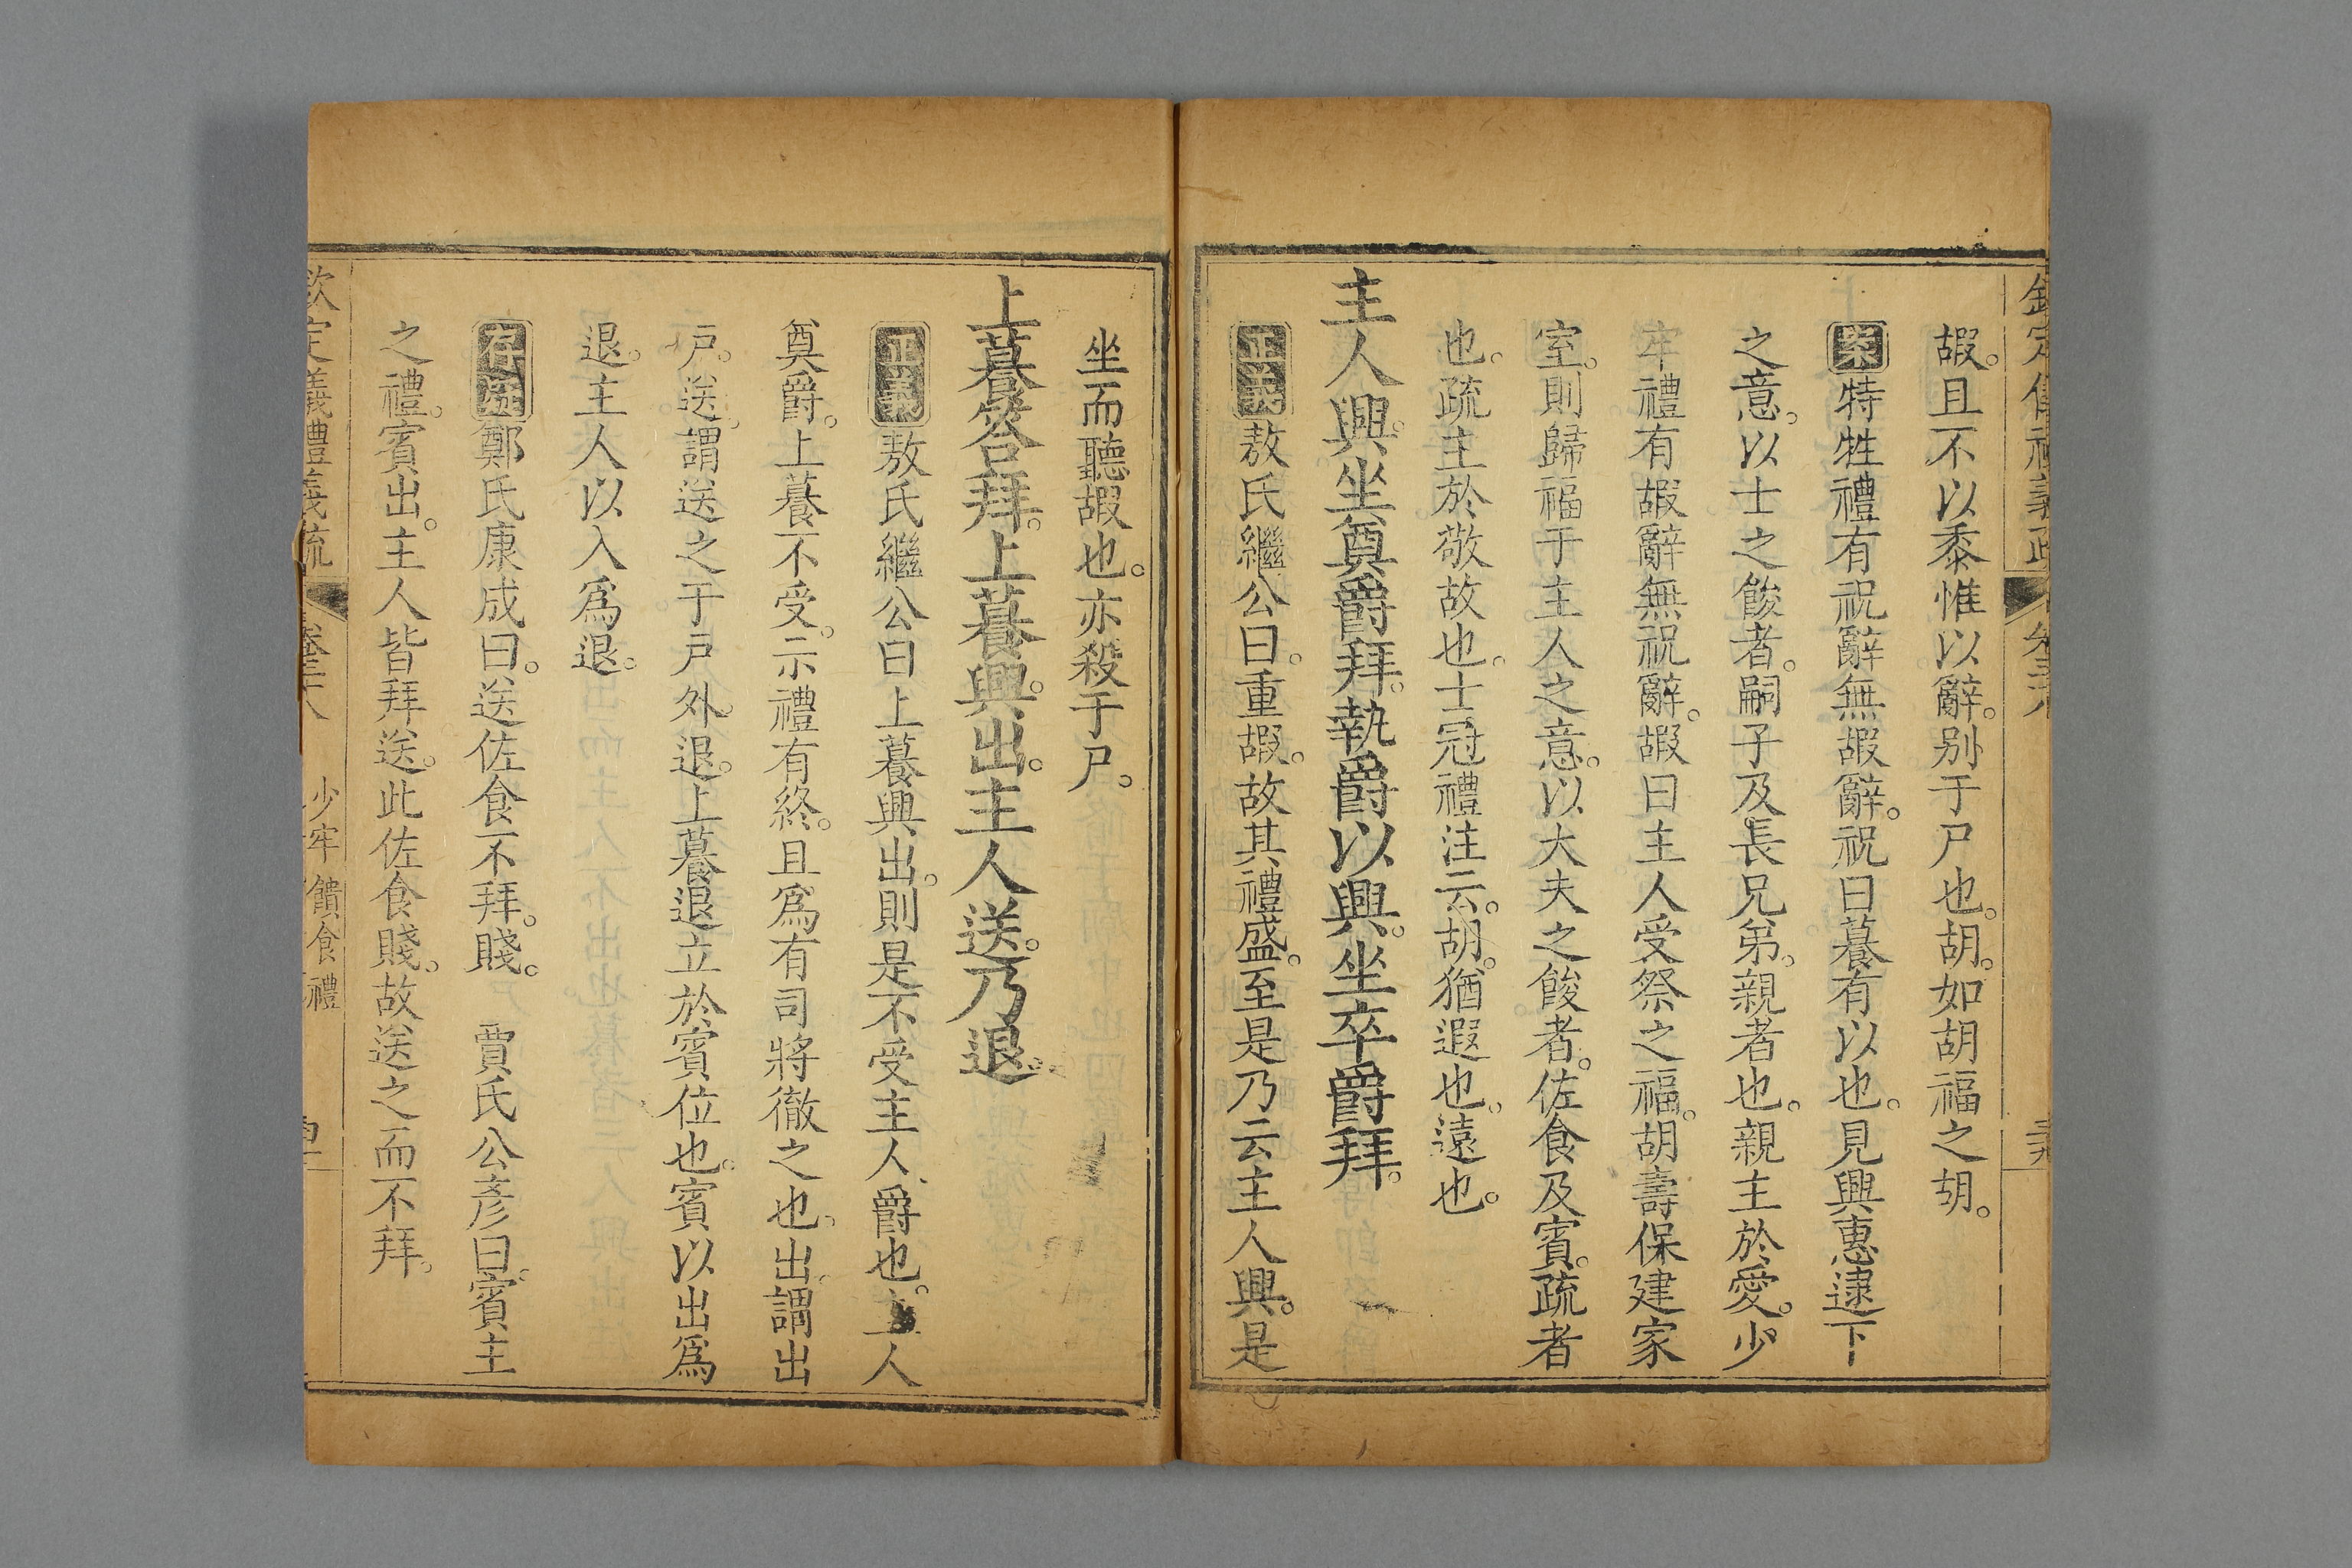 欽定儀禮義疏 卷三十八 三九
嘏。且不以黍惟以辭。别于尸也。胡。如胡福之胡。
案特牲禮有祝辭無嘏辭。祝曰䕩有以也。見興惠逮下
之意。以士之餕者。嗣子及長兄弟。親者也。親主於愛。少
牢禮有嘏辭無祝辭。嘏曰主人受祭之福。胡壽保建家
室。則歸福于主人之意。以大夫之餕者。佐食及賓。疏者
也。疏主於敬故也。士冠禮注云。胡。猶遐也。遠也。
主人興。坐奠爵拜。執爵以興。坐卒爵拜。
正義敖氏繼公曰。重嘏。故其禮盛。至是乃云主人興。是
坐而聽嘏也。亦殺于尸。
上䕩答拜。上䕩興。出。主人送。乃退。
正義敖氏繼公曰上䕩興出。則是不受主人爵也。主人
奠爵。上䕩不受。示禮有終。且爲有司將徹之也。出。謂出
戶。送。謂送之于戶外。退。上䕩退立於賓位也。賓以出爲
退。主人以入爲退。
存疑鄭氏康成曰。送佐食不拜。賤。　賈氏公彥曰。賓主
之禮。賓出。主人皆拜送。此佐食賤。故送之而不拜。
欽定義禮義疏 卷三十八 少牢饋食禮